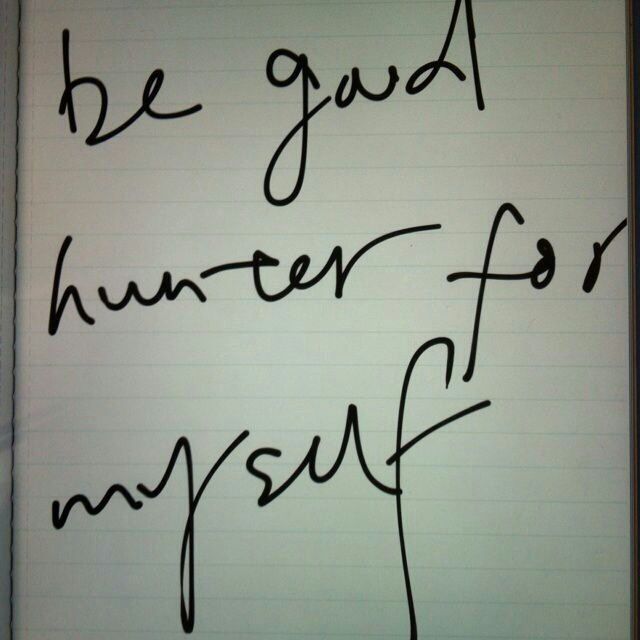 be good
hunter for
myself